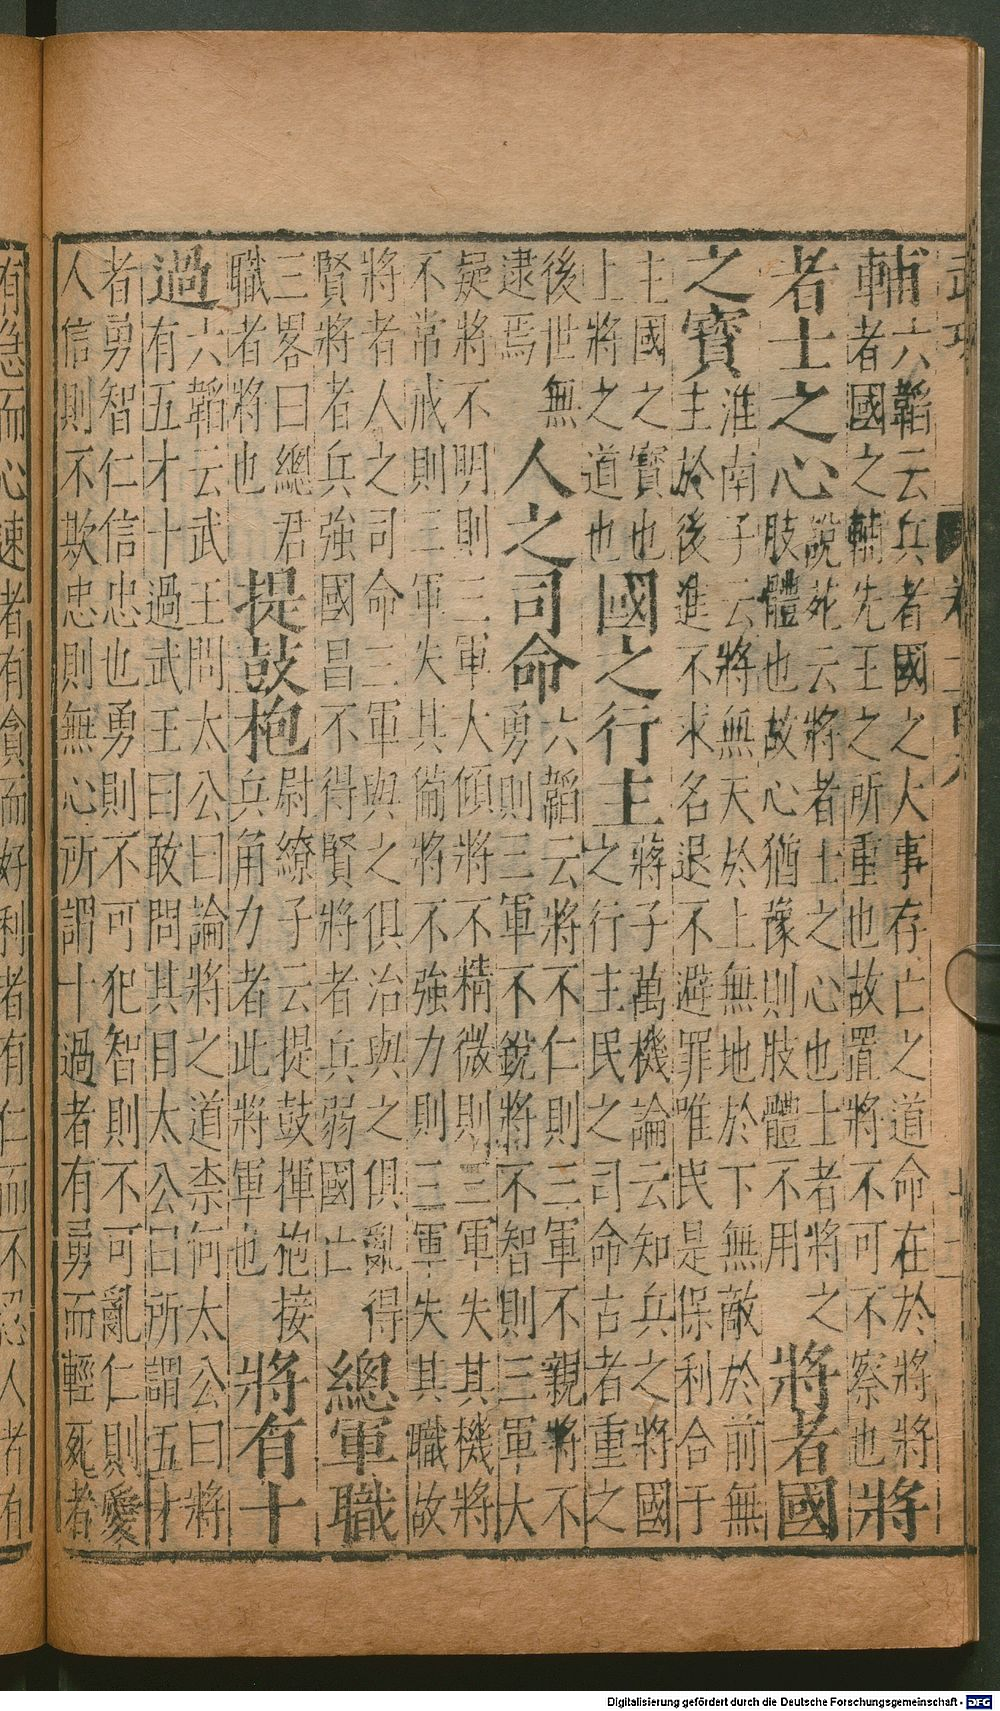 輔
六韜云兵者國之大事存亡之道命在於將將
者國之輔先王之所重也故置將不可不察也
將
者士之心
說苑云將者士之心也士者將之
肢體也故心猶豫則肢體不用
將者國
之寶
淮南子云將無天於上無地於下無敵於前無
主於後進不求名退不避罪唯民是保利合于
主國之寶也
上將之道也
國之行主
蔣子萬機論云知兵之將國
之行主民之司命古者重之
後世無
逮焉
人之司命
六韜云將不仁則三軍不親將不
勇則三軍不銳將不智則三軍大
疑將不明則三軍大傾將不精微則三軍失其機將
不常戒則三軍失其備將不強力則三軍失其職故
將者人之司命三軍與之俱治與之俱亂得
賢將者兵強國昌不得賢將者兵弱國亡
總軍職
三畧曰總君
職者將也
提鼓枹
尉繚子云提鼓揮枹接
兵角力者此將軍也
將有十
過
六韜云武王問太公曰論將之道柰何太公曰將
有五才十過武王曰敢問其目太公曰所謂五才
者勇智仁信忠也勇則不可犯智則不可亂仁則愛
人信則不欺忠則無心所謂十過者有勇而輕死者
有急而心速者有貪而好利者有仁而不忍人者有
Digitalisierung gefördert durch die Deutsche Forschungsgemeinschaft - DFG